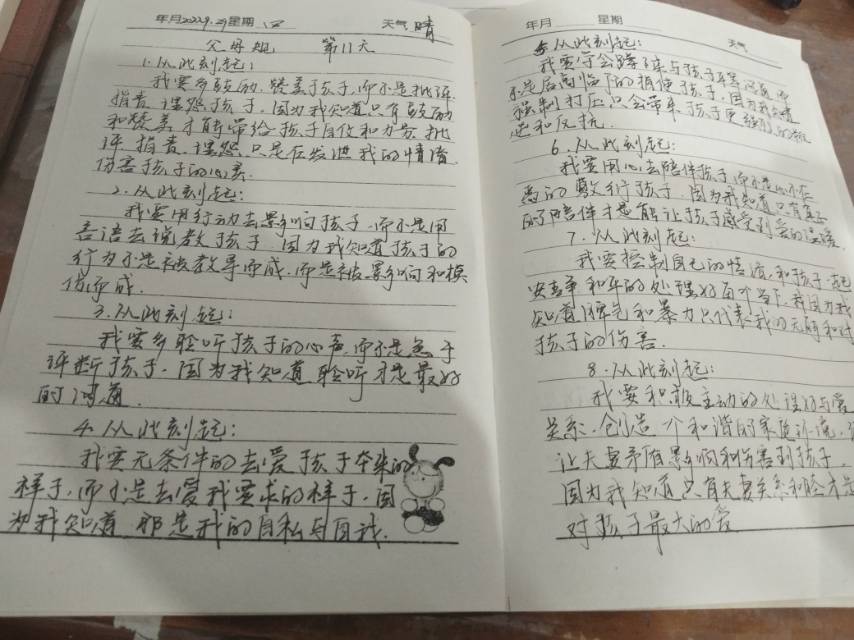 年月2022.9.29星期 四 天气 晴
父母规 第11天
1.从此刻起:
我要多鼓励、赞美孩子,而不是批评、
指责、埋怨孩子,因为我知道只有鼓励
和赞美才能带给孩子自信和力量,批
评、指责、埋怨只是在发泄我的情绪,
伤害孩子的心灵.
2.从此刻起:
我要用行动去影响孩子,而不是用
言语去说教孩子,因为我知道孩子的
行为不是被教导而成,而是被影响和模
仿而成.
3.从此刻起:
我要多聆听孩子的心声,而不是急于
评断孩子,因为我知道聆听才是最好
的沟通.
4.从此刻起:
我要无条件的去爱孩子本来的
样子,而不是去爱我要求的样子,因
为我知道,那是我的自私与自我.
年月 星期 天气
5.从此刻起:
我要学会蹲下来与孩子平等沟通,而
不是居高临下的指使孩子,因为我知道
强制打压只会带来孩子更强烈的叛
逆和反抗.
6.从此刻起:
我要用心去陪伴孩子,而不是心不在
焉的敷衍孩子,因为我知道只有真正
的陪伴才是能让孩子感受到爱的温暖.
7.从此刻起:
我要控制自己的情绪,和孩子一起
安静和平的处理好每个当下,我因为我
知道脾气和暴力只代表我的无能和对
孩子的伤害.
8.从此刻起:
我要积极主动的处理好与爱
关系,创造一个和谐的家庭环境,
让夫妻矛盾影响和伤害到孩子,
因为我知道只有夫妻关系和睦才是
对孩子最大的爱